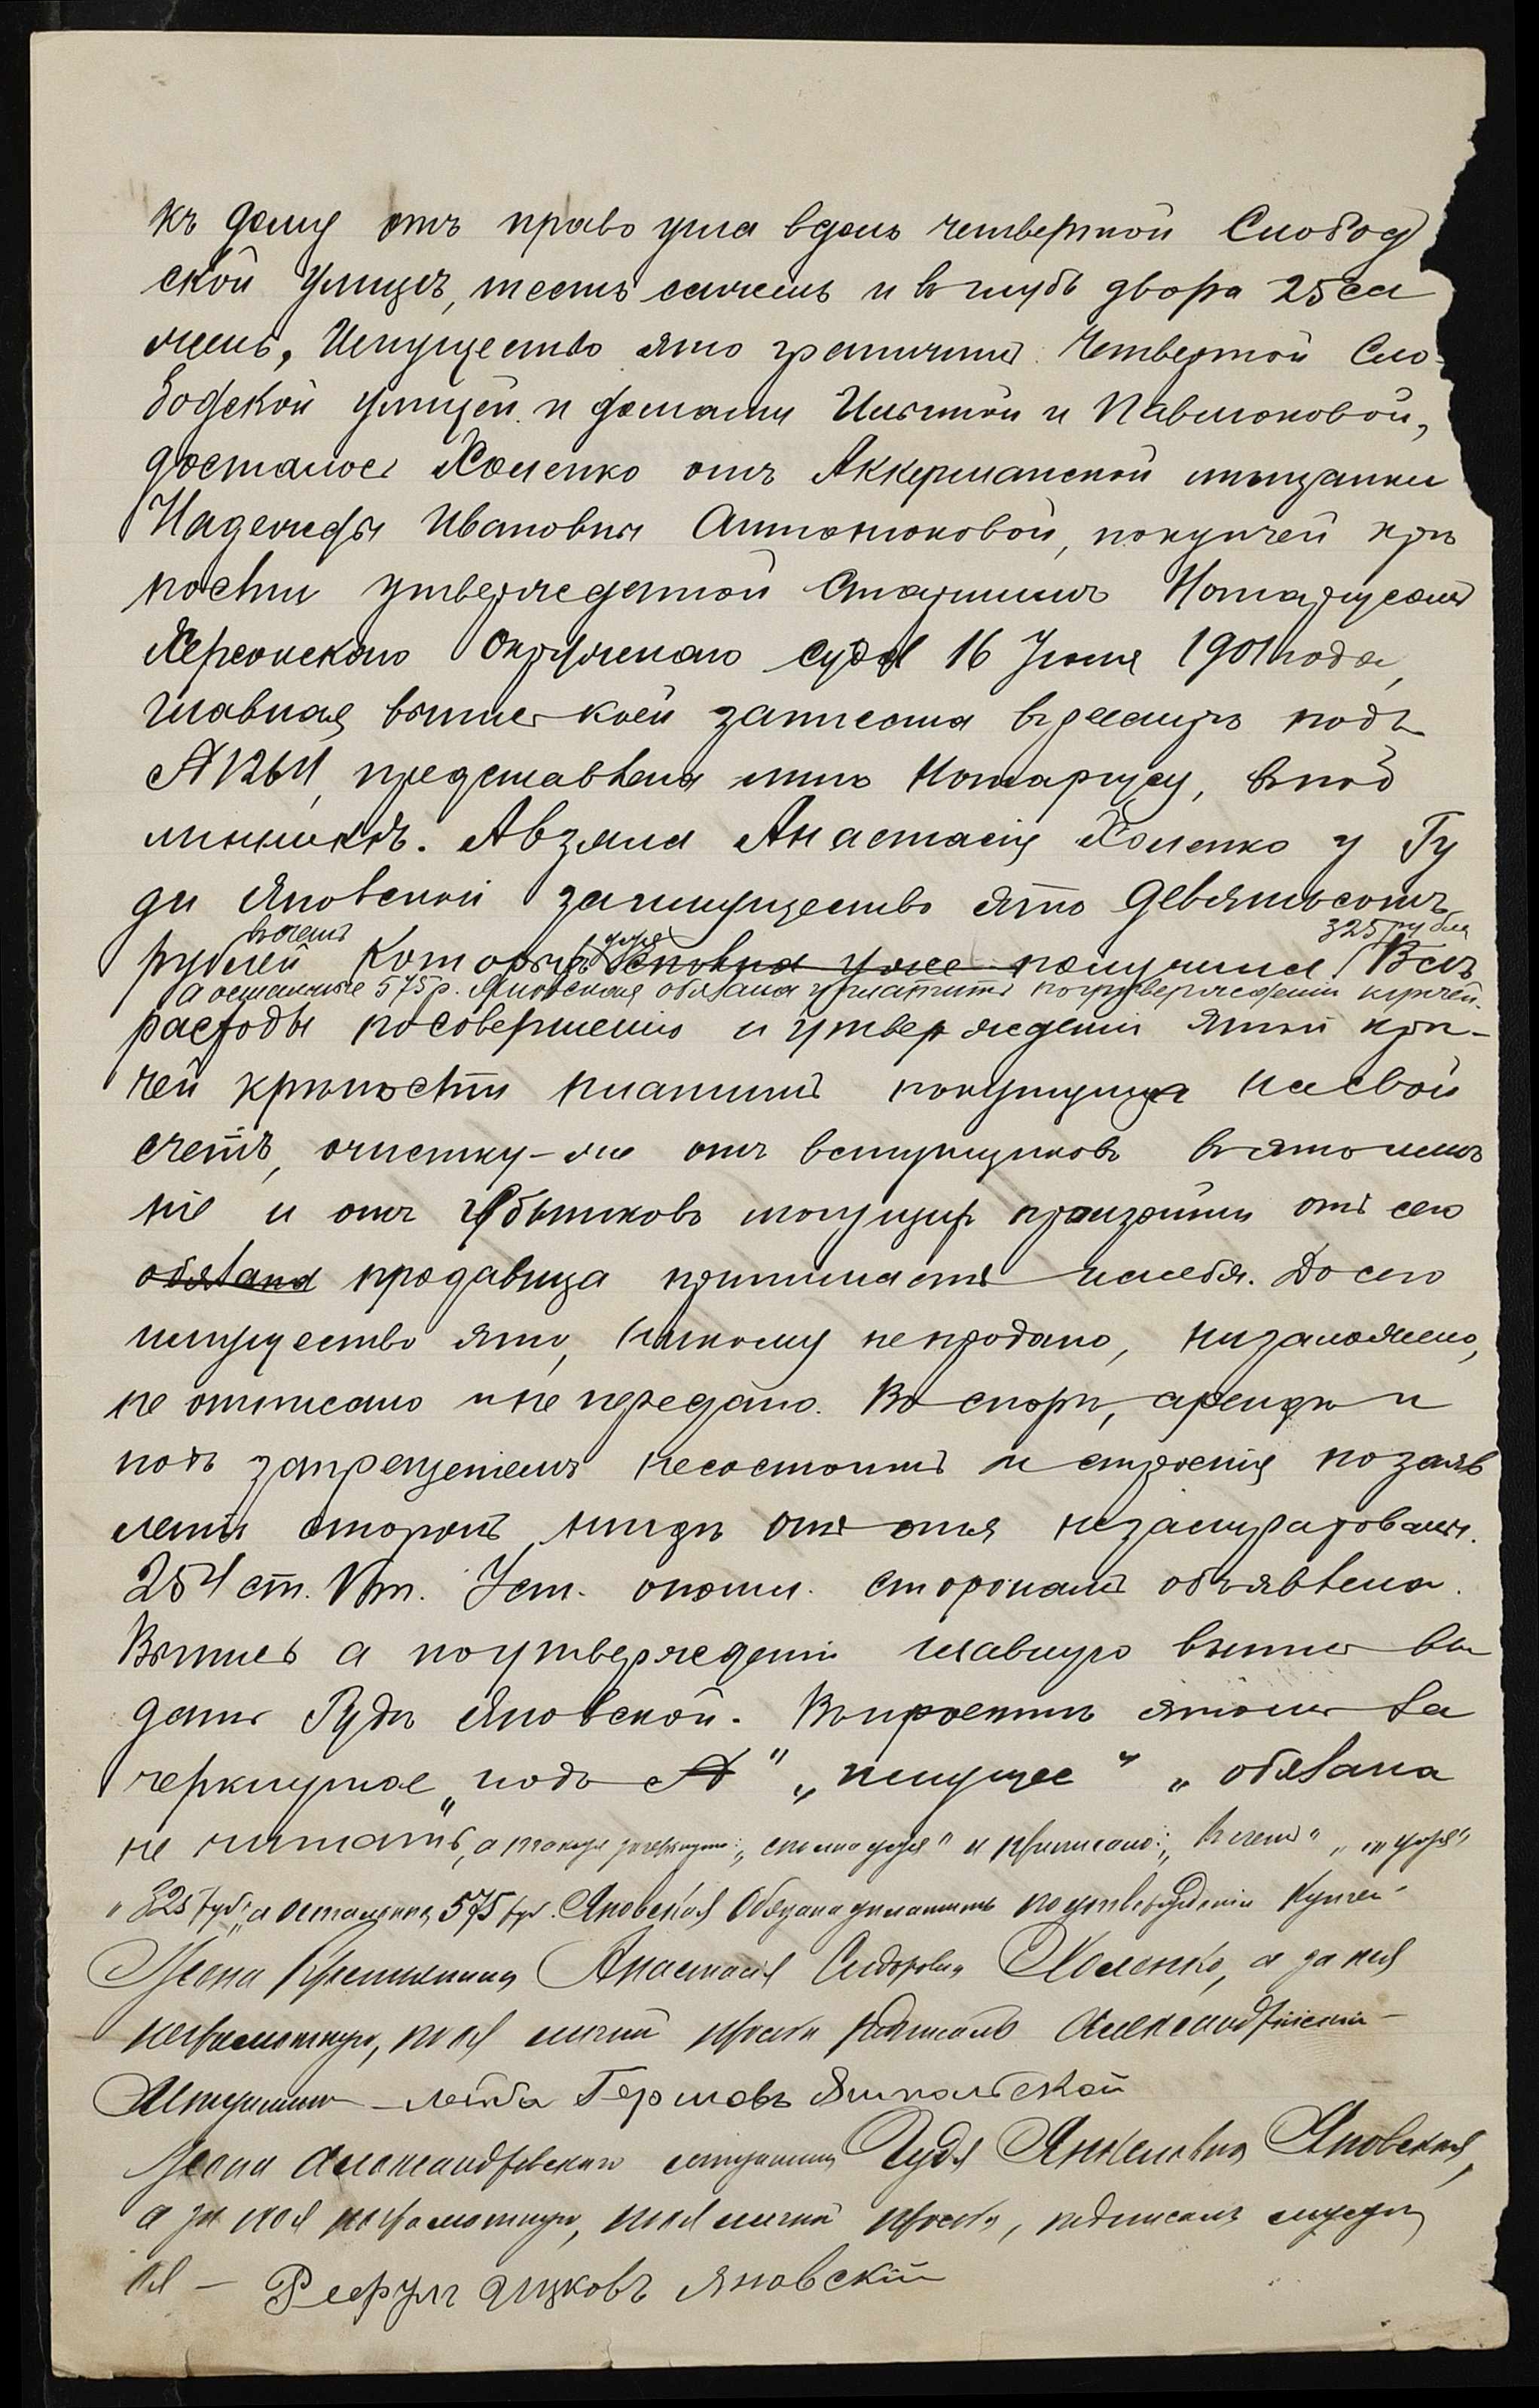 къ дому отъ право угла вдоль четвертой Слобод
ской улицъ, шесть сажень и въ глубь двора 25 са
жень, Имущество это граничитъ Четвертой Сло-
бодской улицей и домами Ильиной и Павлюковой,
досталось Хоменко отъ Аккерманской мѣщанки
Надежды Ивановны Антонюковой, по купчей крѣ
пости утвержденной Старшимъ Нотариусомъ
Херсонскаго Окружнаго Суда 16 Іюня 1901 года,
главная выпись коей записана въ реестръ подъ
представлена мнѣ Нотариусу, въ под
линникѣ. А взяла Анастасія Хоменко у Гу
ди Яновской за имущество это девятьсотъ
въ счетъ 325 рубля
рублей которыхъ сполна уже получила. Всѣ
а остальные 575 р. Яновская обязана уплатить по утвержденіи купчей.
расходы по совершенію и утвержденію этой куп-
чей крѣпости платитъ покупщица на свой
счетъ, очистку-же отъ вступщиковъ въ это имѣ
ніе и отъ убытковъ могущихъ произойти отъ сего
обязана продавица принимаетъ на себя. До сего
имущество это, никому не продано, не заложено,
не отписано и не передано. Въ спорѣ, арендѣ и
подъ запрещеніемъ не состоитъ и строенія по заяв
ленію сторонъ, нигдѣ отъ огня не застрахованы.
254 ст. V т. Уст. о пошл. сторонамъ объявлена.
Выпись а по утвержденіи главную выпись вы
дать Гудѣ Яновской. Въ проектѣ этомъ за
черкнутое „подъ А" „имущее" „обязана
не читать, а также зачеркнуто: „сполна уже" и приписано: „въ счетъ"
„325 руб", „а остальные 575 руб. Яновская обязана уплатить по утвержденіи купчей"
Крестьянка Анастасія Сидорова Хоменко, а за нея
неграмотную, по ея личной просьбѣ подписалъ Александрійскій
Мѣщанинъ — Лейба Гершовъ Ямпольской
Александровская мѣщанка Гудя Янкелевна Яновская,
а за нея неграмотную, по ея личной просьбѣ, подписалъ
Ицковъ Яновскій